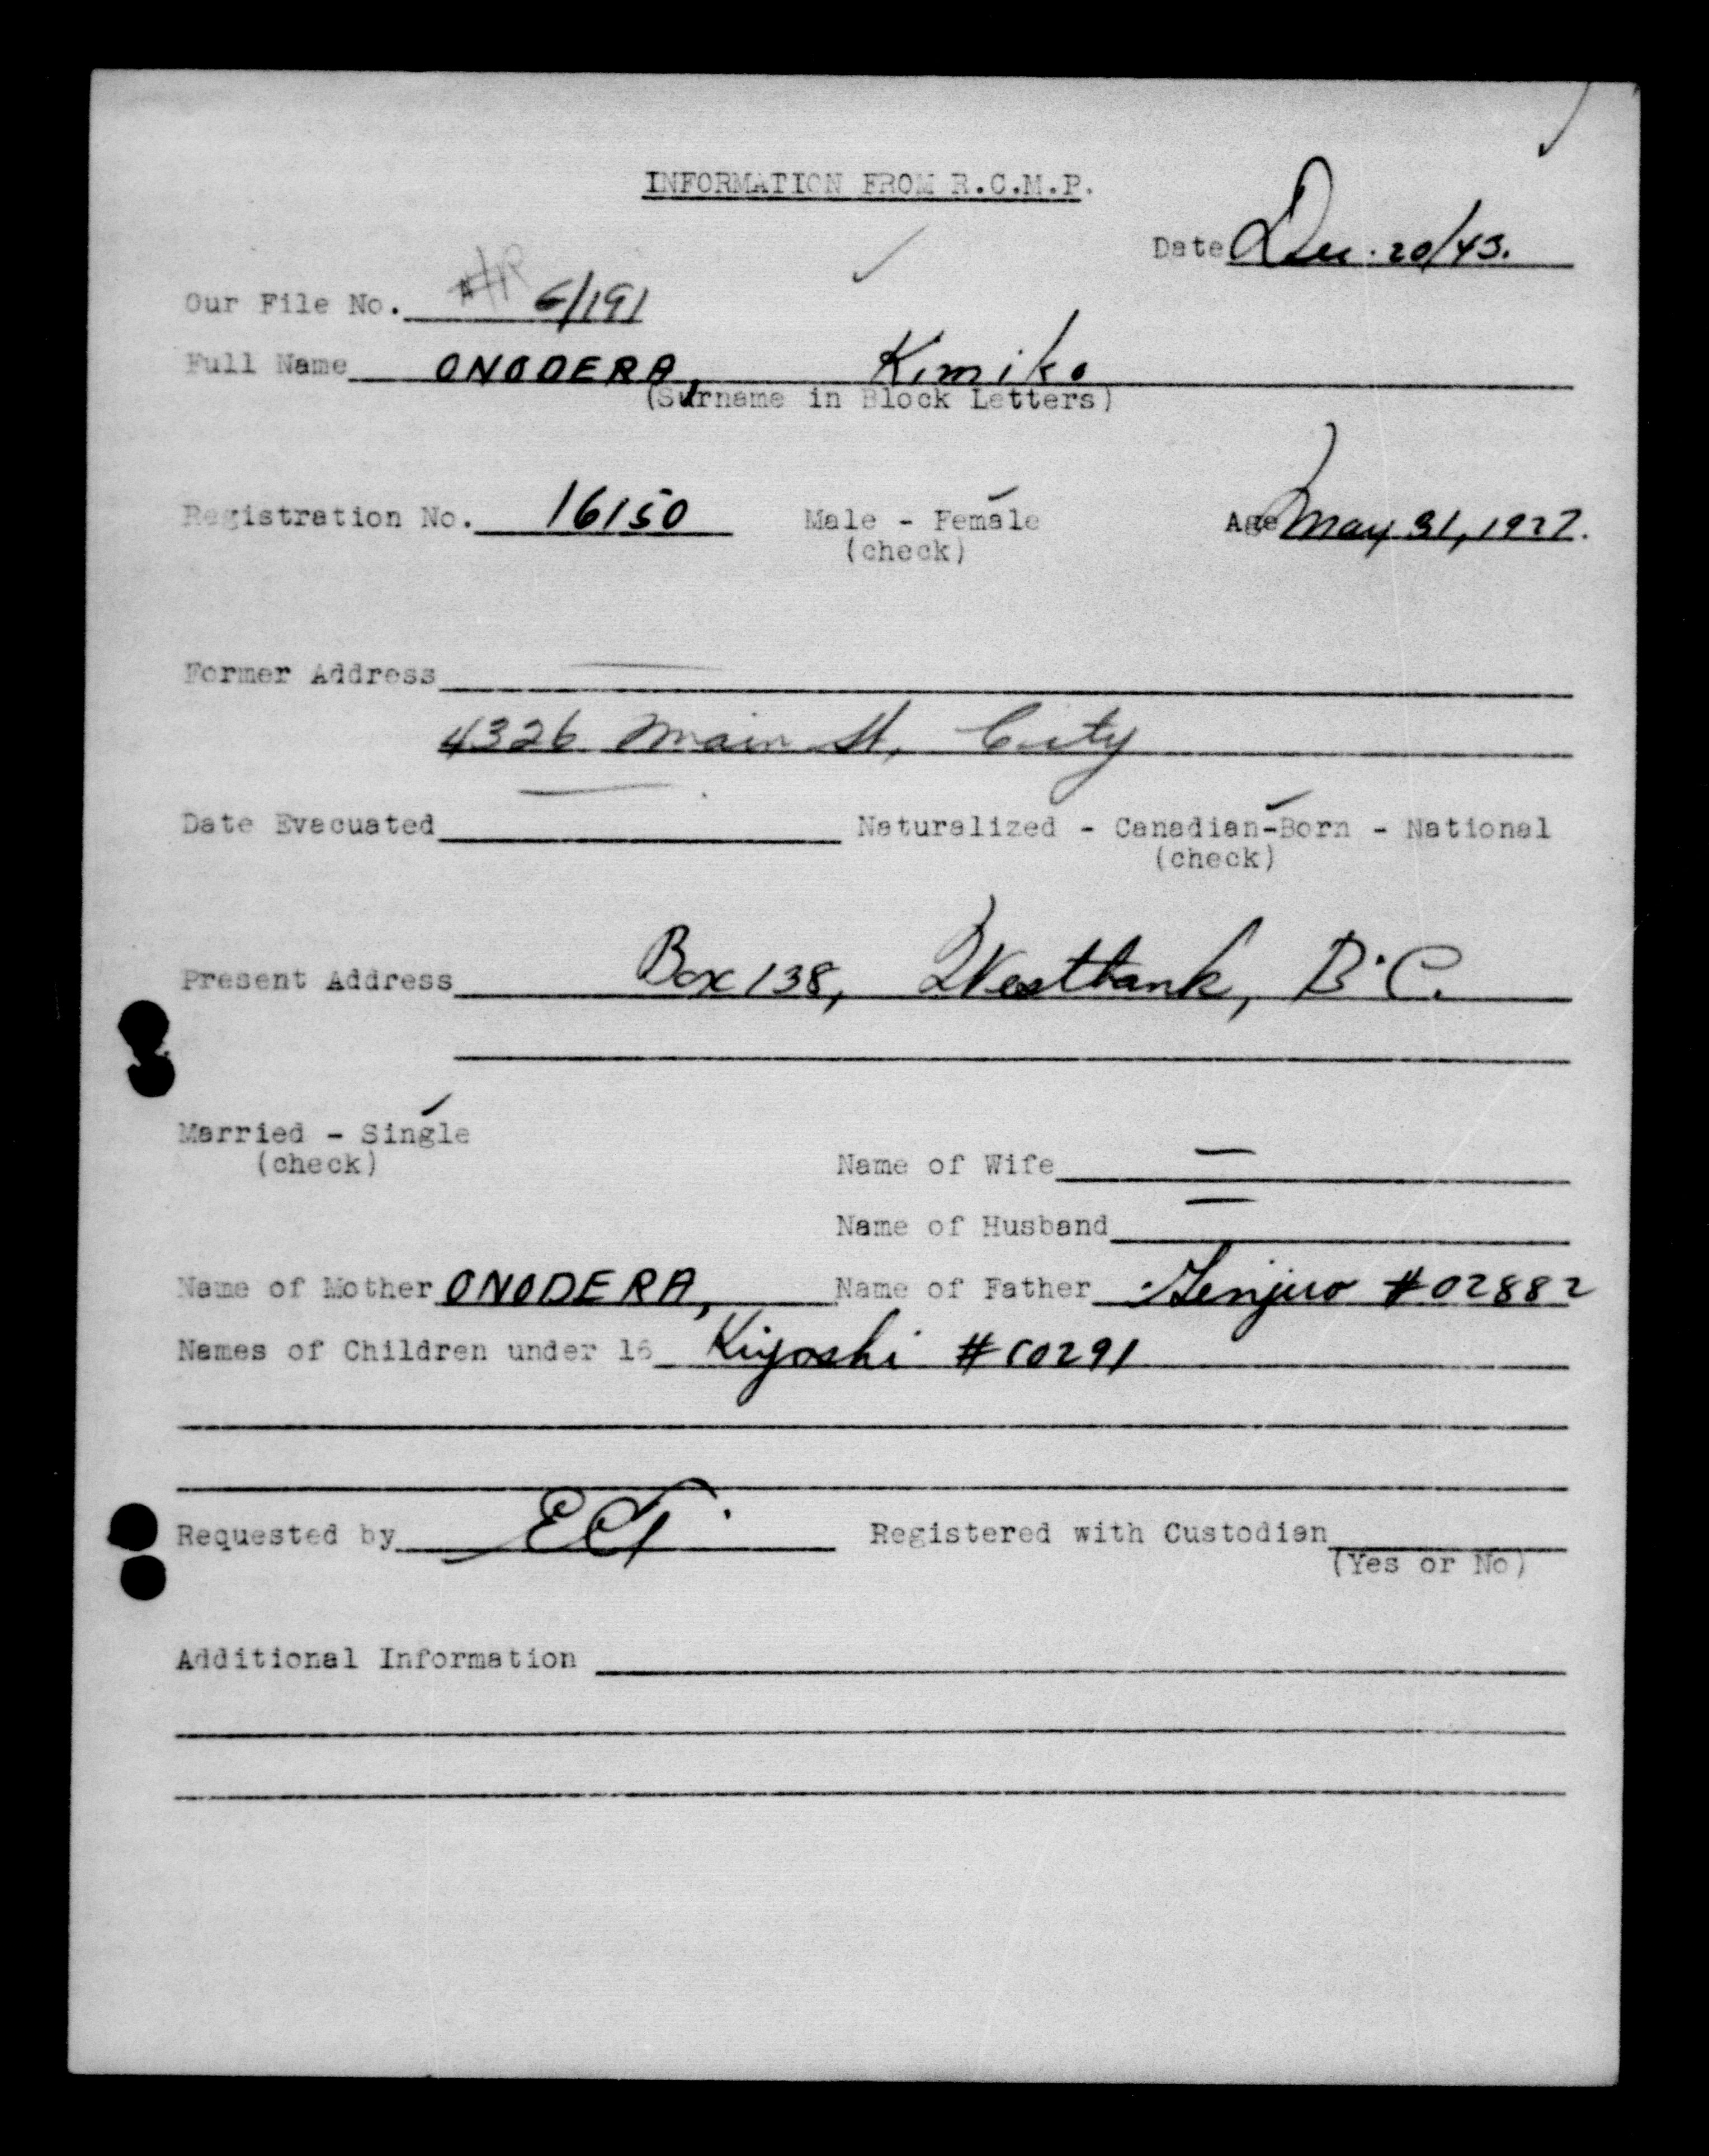 INFORMATION FROM R.C.M.P.
Date Dec. 20/43.
Our File No. 6/191
Full Name ONODERA, Kimiko
(Surname in Block Letters)
Registration No. 16150 Male - Female Age May 31, 1927.
(check)
Former Address
4326 Main St, City
Date Evacuated Naturalized - Canadian-Born - National
(check)
Present Address Box 138, Westbank, B.C.
Married - Single
(check)
Name of Wife —
Name of Husband —
Name of Mother ONODERA, Name of Father Genjiro #02882
Names of Children under 16 Kiyoshi #C0291
Requested by Registered with Custodian
(Yes or No)
Additional Information